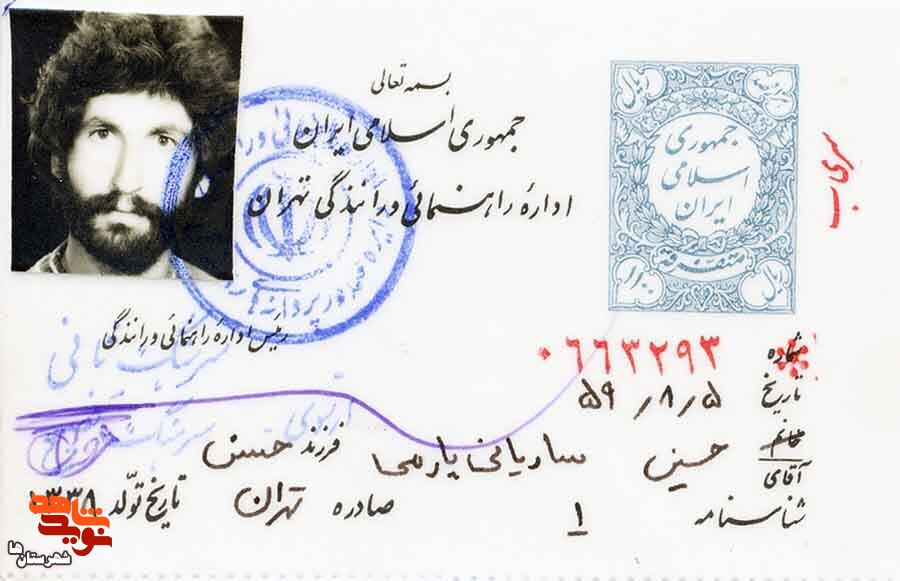 بسمه تعالی
جمهوری اسلامی ایران
ادارهٔ راهنمائی و رانندگی تهران
جمهوری
اسلامی
ایران
متفرقه
سری ب
رئیس ادارهٔ راهنمائی و رانندگی
شماره ۰۶۶۳۲۹۳
تاریخ ۵۹/۸/۵
خانم
آقای حسین ساربانی پارسی فرزند حسن
شناسنامه ۱ صادره تهران تاریخ تولد ۱۳۳۸
نوید شاهد
شهرستان ها